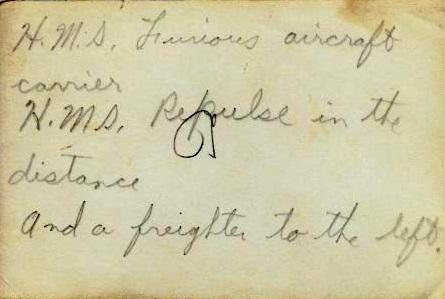 H.M.S. Furious aircraft
carrier
H.M.S. Repulse in the
distance
And a freighter to the left.